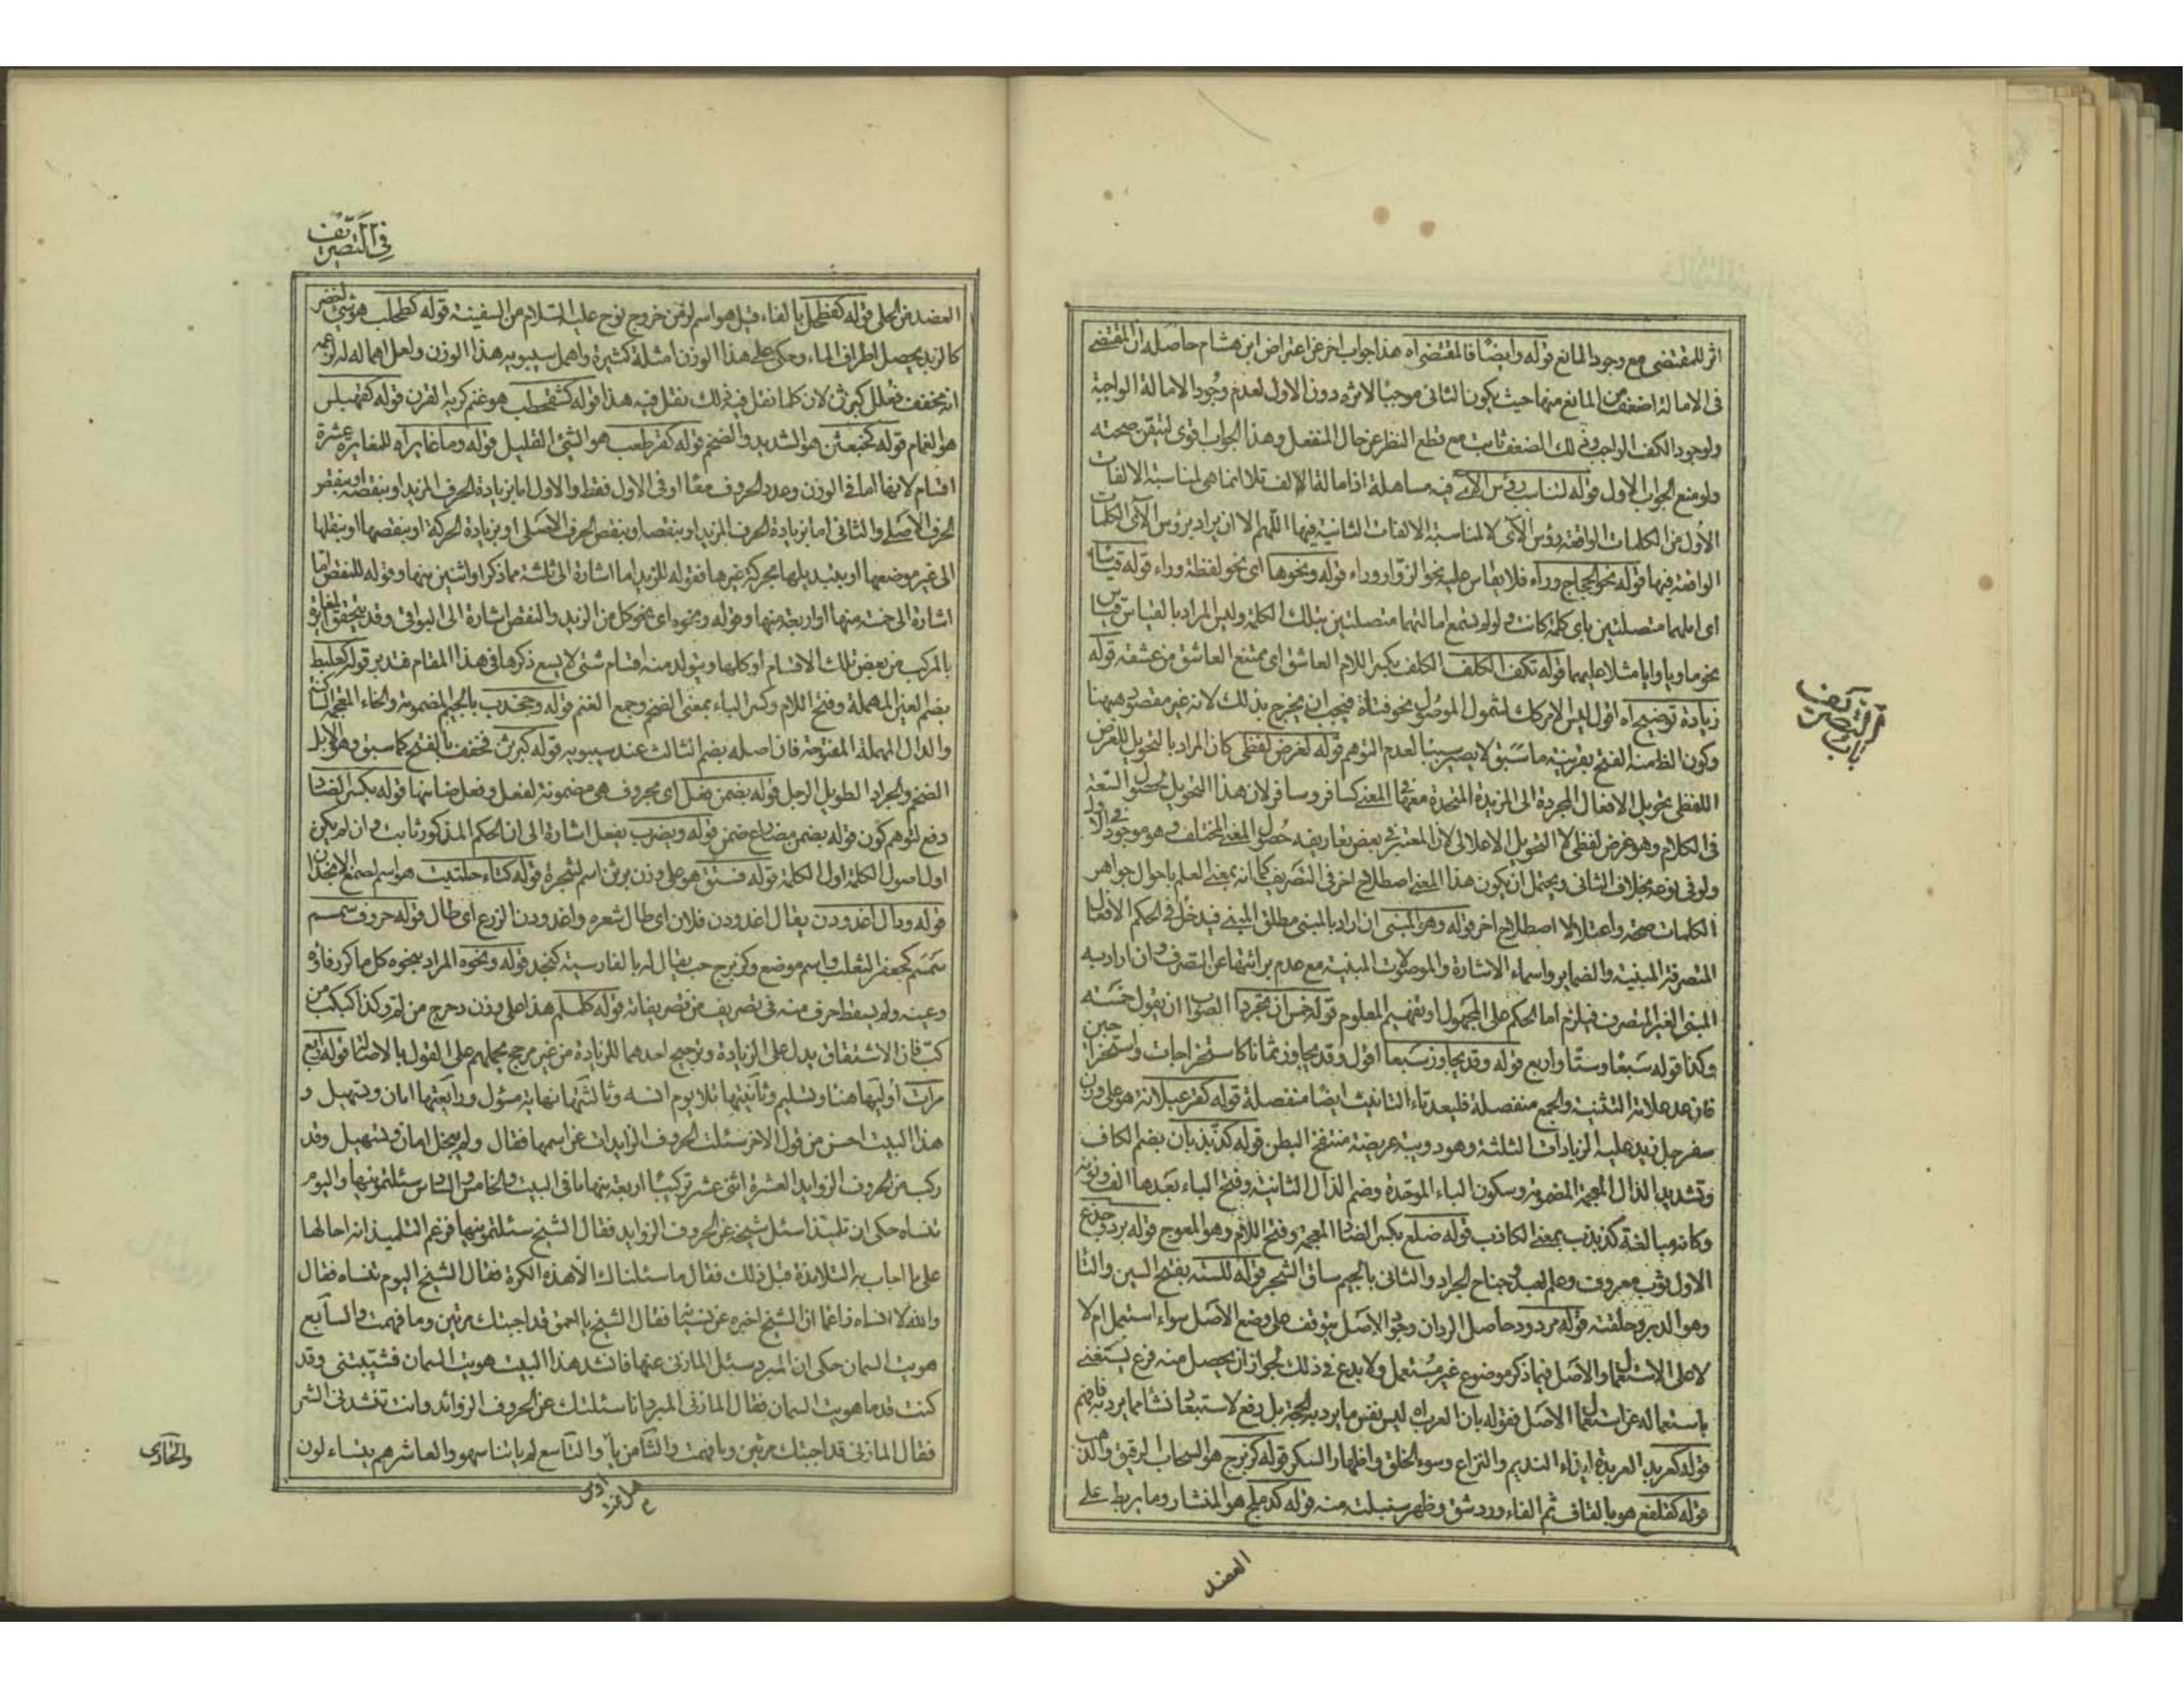 اثر للمقتضى مع وجود المانع قوله وايضا فالمقتضى اه هذا جواب اخر عن اعتراض ابن هشام حاصله ان المقتضى
فى الامالة اضعف من المانع منها حيث يكون الثانى موجبا لاثره دون الاول لعدم وجود الامالة الواجبة
ولوجود الكف الواجب وفى ذلك الضعف ثابت مع قطع النظر عن حال المنفصل وهذا الجواب اقوى لتيقن صحته
ولو منع الجواب الاول قوله لتناسب رؤس الآى فيه مساهلة اذ امالة الالف تلا انما هى لمناسبة الالفات
الأول من الكلمات الواقعة رؤس الآى لا لمناسبة الالفات الثانية فيها اللهم الا ان يراد برؤس الآى الكلمات
الواقعة فيها قوله نحو الحجاج وراء فلا يقاس عليه نحو الزوار وراء قوله ونحوها اى نحو لفظة وراء قوله قياسا
اى املهما متصلتين باى كلمة كانت ولو لم يسمع امالتهما متصلتين بتلك الكلمة وليس المراد بالقياس قياس
نحو ما ويا وايا مثلا عليهما قوله تكف الكلف الكلف بكسر اللام العاشق اى يمتنع العاشق من عشقه قوله
زيادة توضيح اه اقول ليس الامر كك لشمول الموصول نحو فتاة فيجب ان يخرج بذلك لانه غير مقصود ههنا
وكون الظ منه الفتح بقرينة ما سبق لا يصير سببا لعدم التوهم قوله لغرض لفظى كان المراد بالتحويل للغرض
اللفظى تحويل الافعال المجردة الى المزيدة المتحدة معها فى المعنى كسافر وسافر لان هذا التحويل لحصول السعة
فى الكلام وهو غرض لفظى لا التحويل الاعلالى لان المعتبر فى بعض تعاريفه حصول المعنى المختلف وهو موجود فى الاول
ولو فى نوعه بخلاف الثانى ويحتمل ان يكون هذا المعنى اصطلاح اخر فى التصريف كما انه بمعنى العلم باحوال جواهر
الكلمات صحة واعتلالا اصطلاح اخر قوله وهو المبنى ان اراد بالمبنى مطلق المبنى فيدخل فى الحكم الافعال
المتصرفة المبنية والضماير واسماء الاشارة والموصولات المبنية مع عدم برائتها عن التصرف وان اراد به
المبنى الغير المتصرف فيلزم اما الحكم على المجهول او تفهيم المعلوم قوله خمس ان تجردا الصواب ان يقول خمسة
وكذا قوله سبعا وستا واربع قوله وقد يجاوز سبعا اقول وقد يجاوز ثمانا كاستخراجات واستخراجين
فان عد علامة التثنية والجمع منفصلة فليعد تاء التانيث ايضا منفصلة قوله كقرعبلانة هو على وزن
سفرجل زيد عليه الزيادات الثلثة وهو دويبة عريضة منتفخ البطن قوله كذبذبان بضم الكاف
وتشديد الذال المعجمة المضمومة وسكون الباء الموحدة وضم الذال الثانية وفتح الباء بعدها الف ونون
وكانه مبالغة كذبذب بمعنى الكاذب قوله ضلع بكسر الضاد المعجمة وفتح اللام وهو المعوج قوله برد وجذع
الاول ثوب معروف وعلم لعبد وجناح الجراد والثانى بالجيم ساق الشجر قوله للسته بفتح السين والتا
وهو الدبر وحلقته قوله مردود حاصل الرد ان وجود الاصل يتوقف على وضع الاصل سواء استعمل ام لا
لا على الاستعمال والاصل فيما ذكر موضوع غير مستعمل ولا بدع فى ذلك لجواز ان يحصل منه فرع يستغنى
باستعماله عن استعمال الاصل فقوله بان العرب اه ليس نفس ما يرد به الحجة بل دفع لاستبعاد نشأ مما يرد به فافهم
قوله كعربد العربدة ايذاء النديم والنزاع وسوء الخلق واظهار السكر قوله كزبرج هو السحاب الرقيق والذهب
قوله كقلفع هو بالقاف ثم الفاء ورد شق وظهر سنبلت منه قوله كدملج هو المنشار وما يربط على
العضد
باب التصريف
فى التصريف
العضد من الحلى قوله كفطحل بالفاء قيل هو اسم لزمن خروج نوح عليه السلام من السفينة قوله كطحلب هو شىء اخضر
كالزبد يحصل اطراف الماء وحكى على هذا الوزن امثلة كثيرة واهمل سيبويه هذا الوزن ولعل اهماله لزعمه
انه مخفف فعلل كبرثن لان كلما نقل فيه ذلك نقل فيه هذا قوله كشقحطب هو غنم كريه القرن قوله كقهبلس
هو الغمام قوله كخبعثن هو الشديد والضخم قوله كقرطعب هو الشئ القليل قوله وما غاير اه للمغايرة عشرة
اقسام لانها اما فى الوزن وعدد الحروف معا او فى الاول فقط والاول اما بزيادة الحرف المزيد او بنقصه او بنقص
الحرف الاصلى والثانى اما بزيادة الحرف المزيد او بنقصا وبنقص الحرف الاصلى او بزيادة الحركة او بنقصها او بنقلها
الى غير موضعها او بتبديلها بحركة غيرها فقوله للزيد اما اشارة الى ثلثة مما ذكر او اثنين منها وقوله للنقص اما
اشارة الى خمسة منها او اربعة منها وقوله ونحوه اى نحو كل من الزيد والنقص اشارة الى البواقى وقد يتحقق المغايرة
بالمركب من بعض تلك الاقسام او كلها ويتولد منه اقسام شتى لا يسع ذكرها فى هذا المقام فتدبر قوله كعلبط
بضم العين المهملة وفتح اللام وكسر الباء بمعنى الضخم وجمع الغنم قوله وجخدب بالجيم المضمومة والخاء المعجمة الساكنة
والدال المهملة المفتوحة فان اصله بضم الثالث عند سيبويه قوله كبرثن فخفف بالفتح كما سبق وهو الابل
الضخم والجراد الطويل الرجل قوله بضمن فعل اى بحروف هى مضمونة لفعل وفعل ضابها قوله بكسر الضاد
دفع لتوهم كون قوله بضمن مضارع ضمن قوله ويضرب يفعل اشارة الى ان الحكم المذكور ثابت وان لم يكن
اول اصول الكلمة اول الكلمة قوله فستق هو على وزن برثن اسم لشجرة قوله كتاء حلتيت هو اسم لصمغ الانجذان
قوله ودال اغدودن يقال اغدودن فلان اى طال شعره واغدودن الزرع اى طال قوله حروف سمسم
سمسم كجعفر الثعلب واسم موضع وكزبرج حب يقال له بالفارسية كنجد قوله ونحوه المراد بنحوه كل ما كرر فاؤه
وعينه ولم يسقط حرف منه فى تصريف من تصريفاته قوله كلملم هذا على وزن دحرج من لم وكذا كبكب من
كب فان الاشتقاق يدل على الزيادة وترجيح احدهما للزيادة من غير مرجح يحملهم على القول بالاصالة قوله اربع
مرات أوليها هناء وتسليم وثانيتها تلا يوم انسه وثالثتها نهاية مسؤل ورابعتها امان وتسهيل و
هذا البيت احسن من قول الاخر سئلت الحروف الزايدات عن اسمها فقال ولم يبخل امان وتسهيل وقد
ركب من الحروف الزوايد العشرة اثنى عشر تركيبا اربعة منها ما فى البيت والخامس والسادس سئلتمونيها واليوم
تنساه حكى ان تلميذا سئل شيخه عن الحروف الزوايد فقال الشيخ سئلتمونيها فزعم التلميذ انه احالها
على ما اجاب به التلامذة قبل ذلك فقال ما سئلناك الا هذه الكرة فقال الشيخ اليوم تنساه فقال
والله لا انساه زاعما ان الشيخ اخبره عن نسيه فقال الشيخ يا احمق قد اجبتك مرتين وما فهمت والسابع
هويت السمان حكى ان المبرد سئل المازنى عنها فانشد هذا البيت هويت السمان فشيبتنى وقد
كنت قدما هويت السمان فقال المازنى المبرد انا سئلتك عن الحروف الزوائد وانت تنشدنى الشعر
فقال المازنى قد اجبتك مرتين وما فهمت والثامن يا والتاسع لم ياتنا سهو والعاشر هم يتساءلون
والحادى